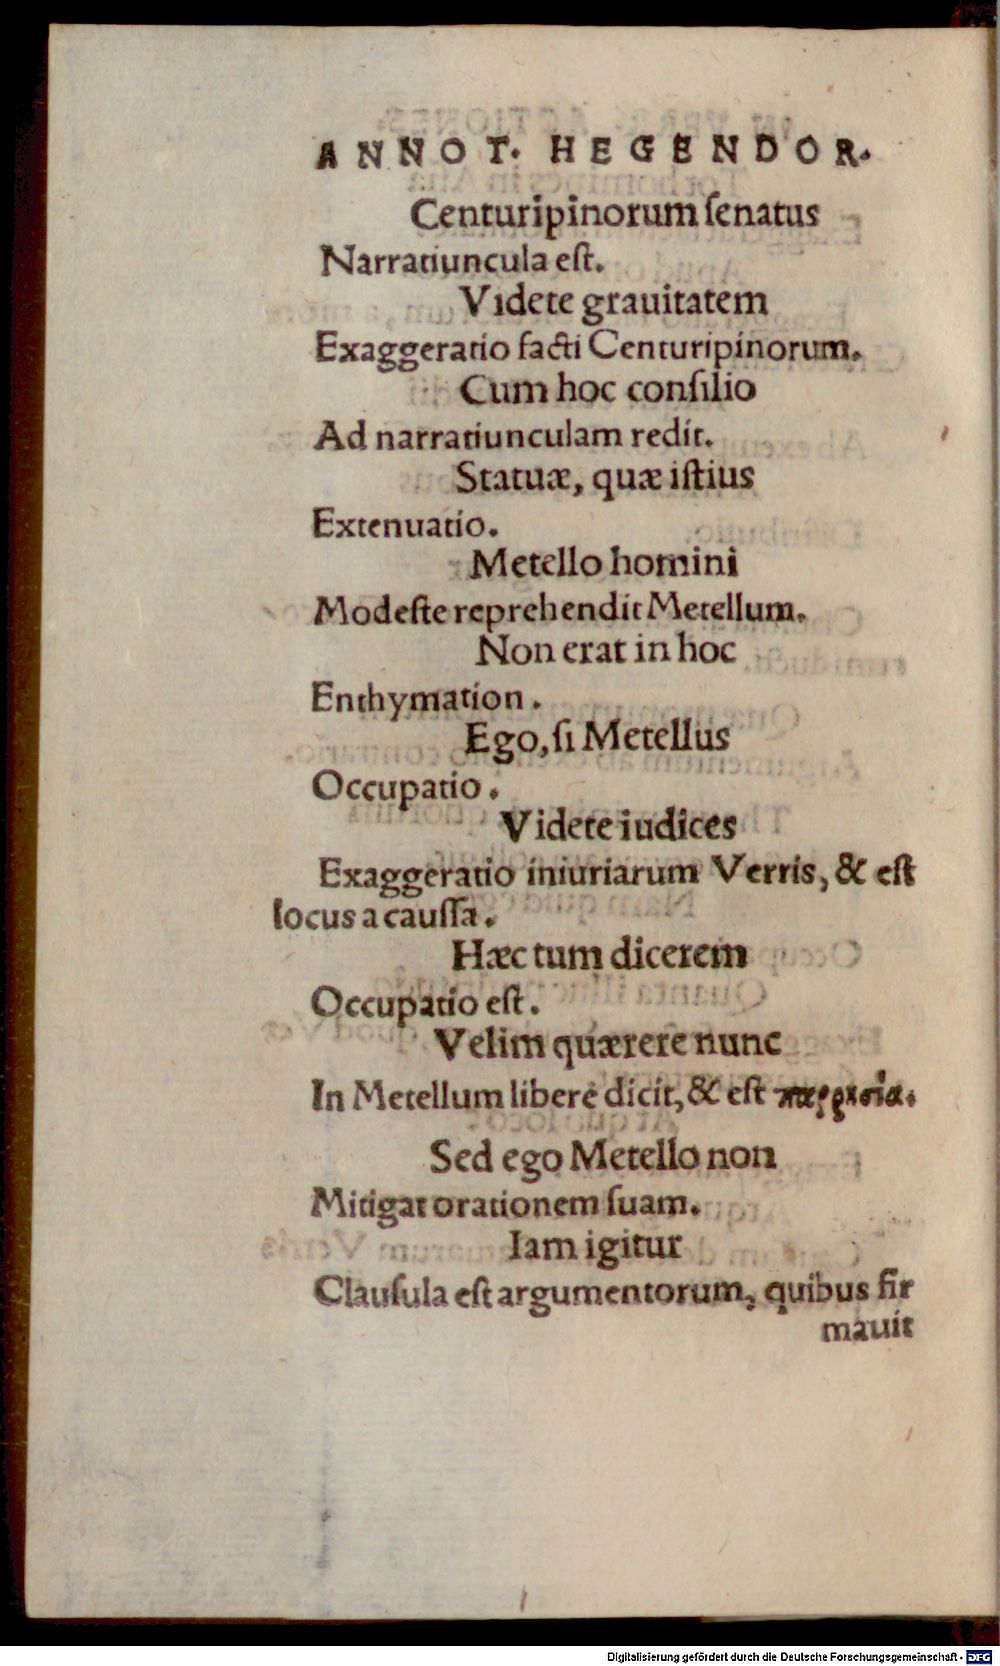 ANNOT. HEGENDOR.
Centuripinorum ſenatus
Narratiuncula eſt.
Videte grauitatem
Exaggeratio facti Centuripinorum.
Cum hoc conſilio
Ad narratiunculam redit.
Statuæ, quæ iſtius
Extenuatio.
Metello homini
Modeſte reprehendit Metellum.
Non erat in hoc
Enthymation.
Ego, ſi Metellus
Occupatio.
Videte iudices
Exaggeratio iniuriarum Verris, & eſt
locus a cauſſa.
Hæc tum dicerem
Occupatio eſt.
Velim quærere nunc
In Metellum libere dicit, & eſt παῤῥησία.
Sed ego Metello non
Mitigat orationem ſuam.
Iam igitur
Clauſula eſt argumentorum, quibus fir
mauit
Digitalisierung gefördert durch die Deutsche Forschungsgemeinschaft - DFG